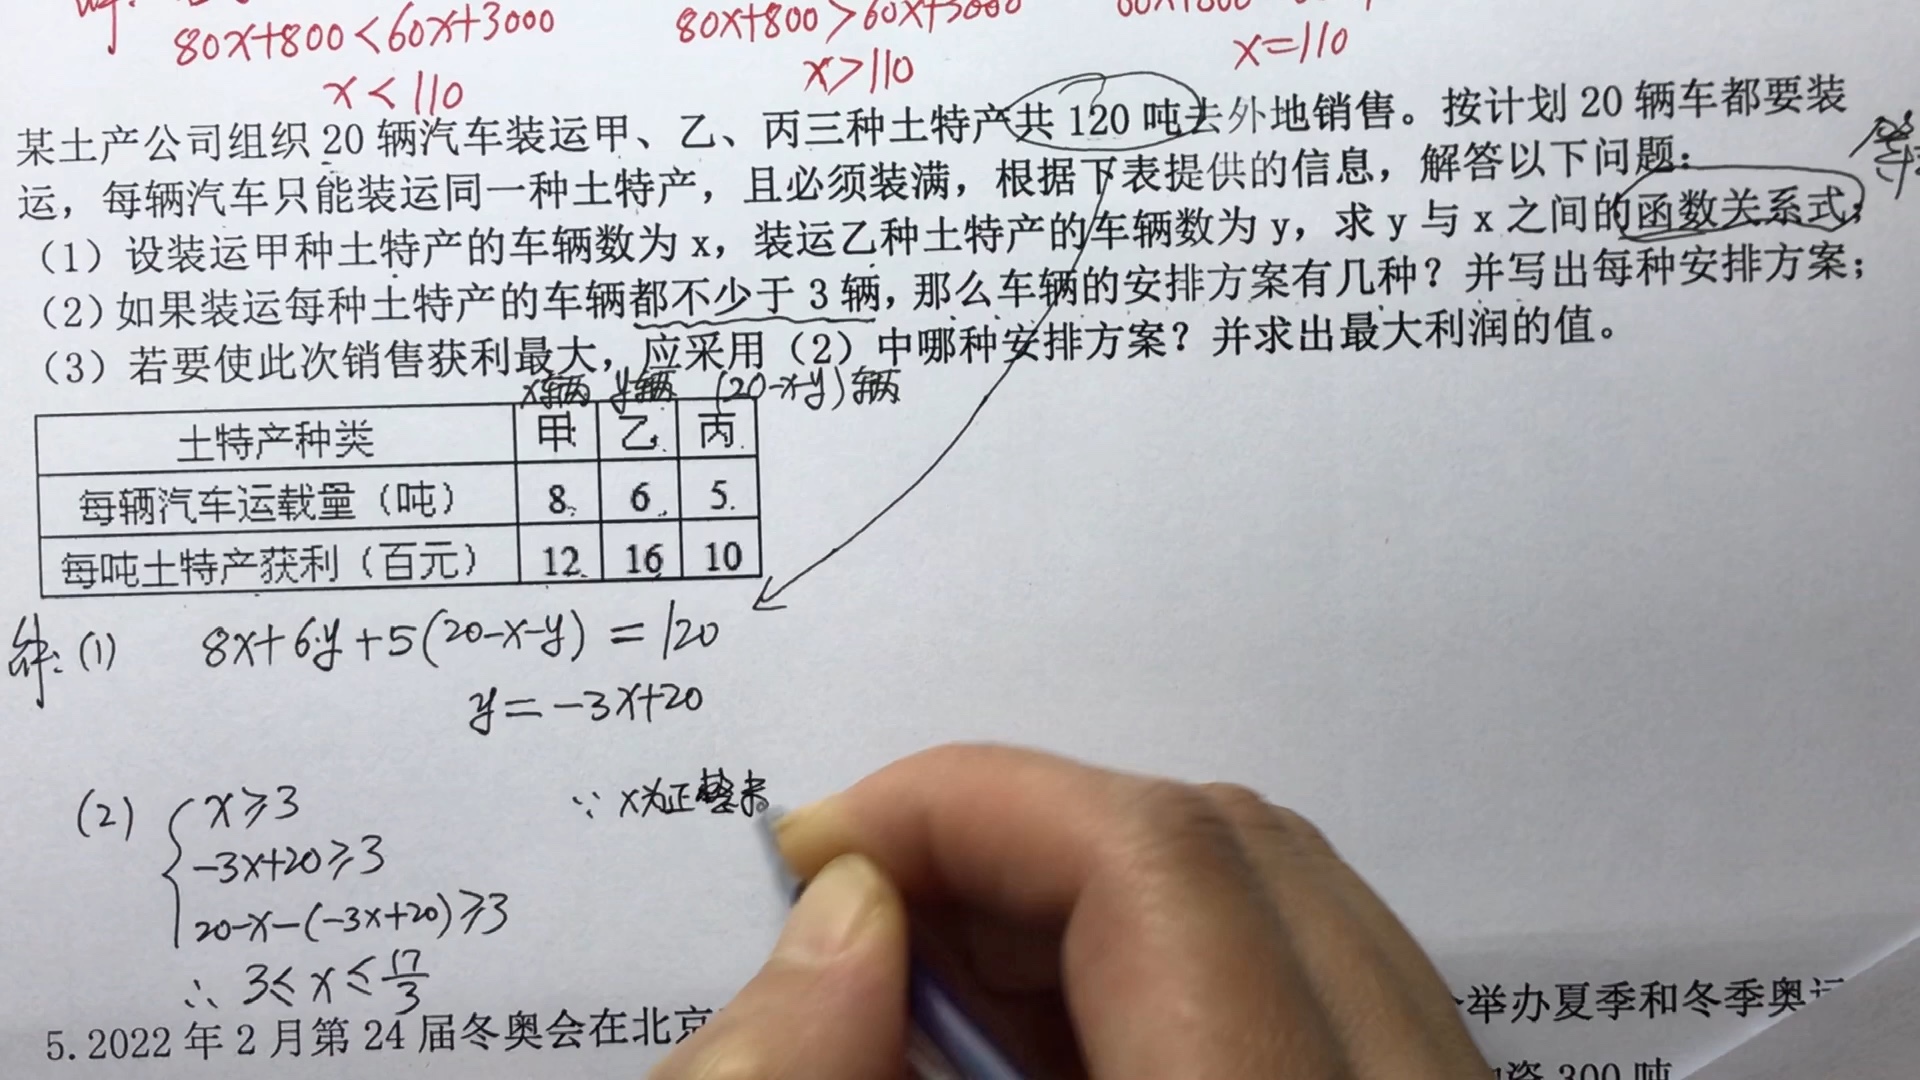 80x+800<60x+3000
80x+800>60x+3000
x<110
x>110
x=110
某土产公司组织 20 辆汽车装运甲、乙、丙三种土特产共 120 吨去外地销售。按计划 20 辆车都要装
运，每辆汽车只能装运同一种土特产，且必须装满，根据下表提供的信息，解答以下问题：
（1）设装运甲种土特产的车辆数为 x，装运乙种土特产的车辆数为 y，求 y 与 x 之间的函数关系式；
（2）如果装运每种土特产的车辆都不少于 3 辆，那么车辆的安排方案有几种？并写出每种安排方案；
（3）若要使此次销售获利最大，应采用（2）中哪种安排方案？并求出最大利润的值。
x辆 y辆 (20-x-y)辆
土特产种类 甲 乙 丙
每辆汽车运载量（吨） 8 6 5
每吨土特产获利（百元） 12 16 10
解:(1) 8x+6y+5(20-x-y)=120
y=-3x+20
(2) x≥3
-3x+20≥3
20-x-(-3x+20)≥3
∴ 3≤x≤17/3
∵ x为正整
5.2022 年 2 月第 24 届冬奥会在北京
举办夏季和冬季奥运
资 300 吨